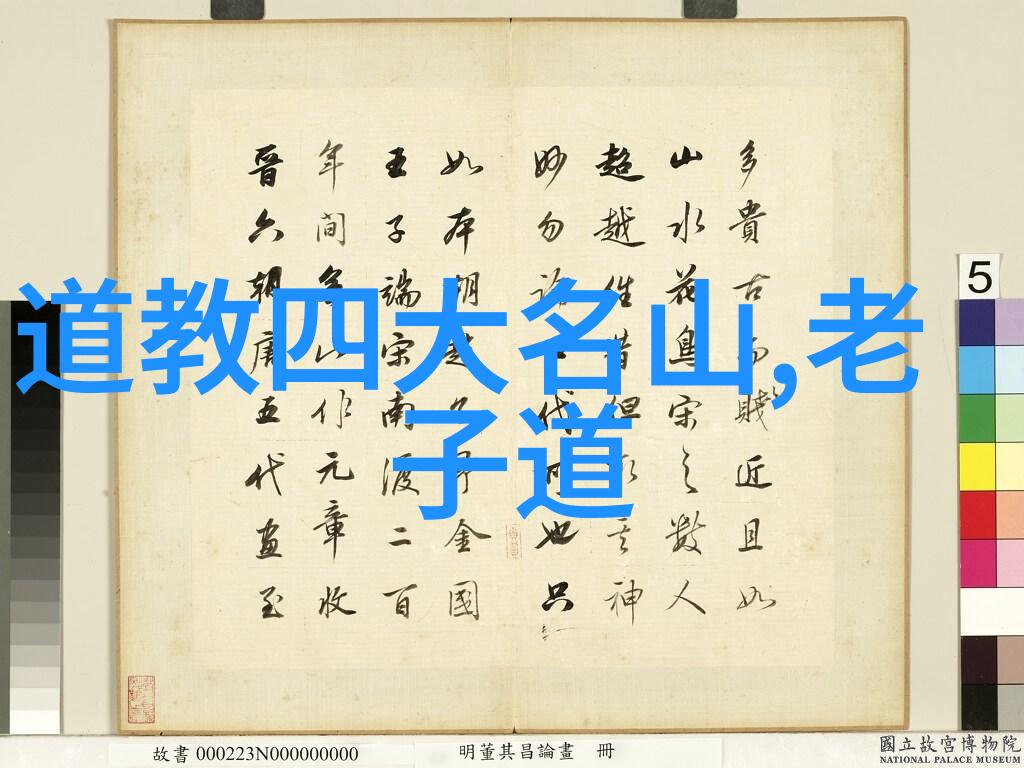 道教四大名山,老
子道
多貴古而賤近且如
山水花鳥宋之數人
超越往昔但取其神
妙勿論代可也只
如本朝趙金國
王子端宋南渡二百
年間無此作元章收
晉六朝唐五代畫至
5
故書 000223N000000000
明董其昌論畫 冊
國立故宮博物院
NATIONAL PALACE MUSEUM